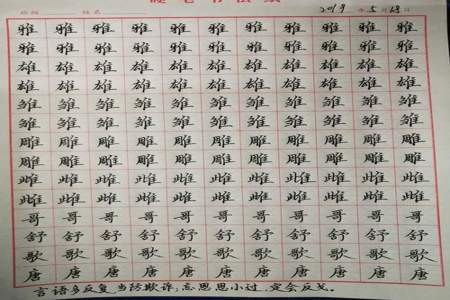 2019年5月
雅 雅 雅 雅 雅 雅 雅 雅 雅 雅 雅
雅 雅 雅 雅 雅 雅 雅 雅 雅 雅 雅
雄 雄 雄 雄 雄 雄 雄 雄 雄 雄 雄
雄 雄 雄 雄 雄 雄 雄 雄 雄 雄 雄
雏 雏 雏 雏 雏 雏 雏 雏 雏 雏 雏
雏 雏 雏 雏 雏 雏 雏 雏 雏 雏 雏
雕 雕 雕 雕 雕 雕 雕 雕 雕 雕 雕
雕 雕 雕 雕 雕 雕 雕 雕 雕 雕 雕
雌 雌 雌 雌 雌 雌 雌 雌 雌 雌 雌
雌 雌 雌 雌 雌 雌 雌 雌 雌 雌 雌
哥 哥 哥 哥 哥 哥 哥 哥 哥 哥 哥
舒 舒 舒 舒 舒 舒 舒 舒 舒 舒 舒
歌 歌 歌 歌 歌 歌 歌 歌 歌 歌 歌
唐 唐 唐 唐 唐 唐 唐 唐 唐 唐 唐
言语多反复,当防欺诈;忘恩思小过,定会反戈。